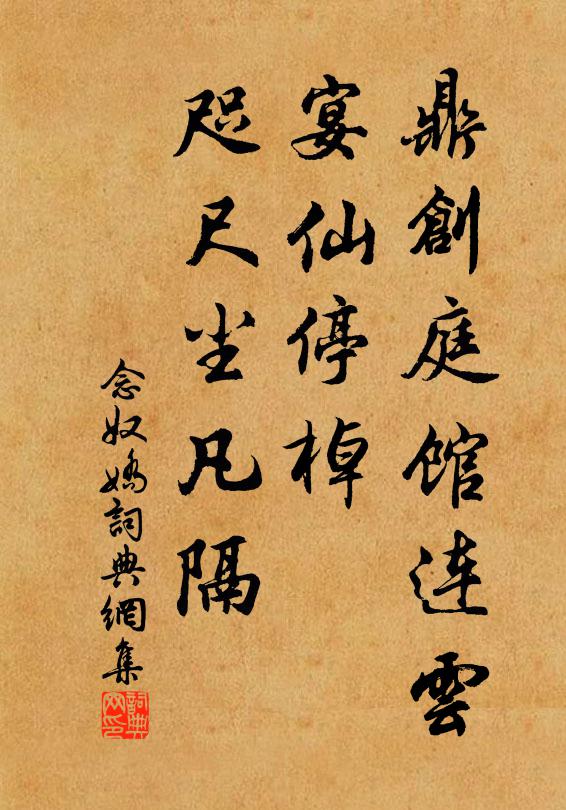 鼎創庭館连雲
宴仙停棹
咫尺尘凡隔
念奴嬌詞典網集
詞典网印